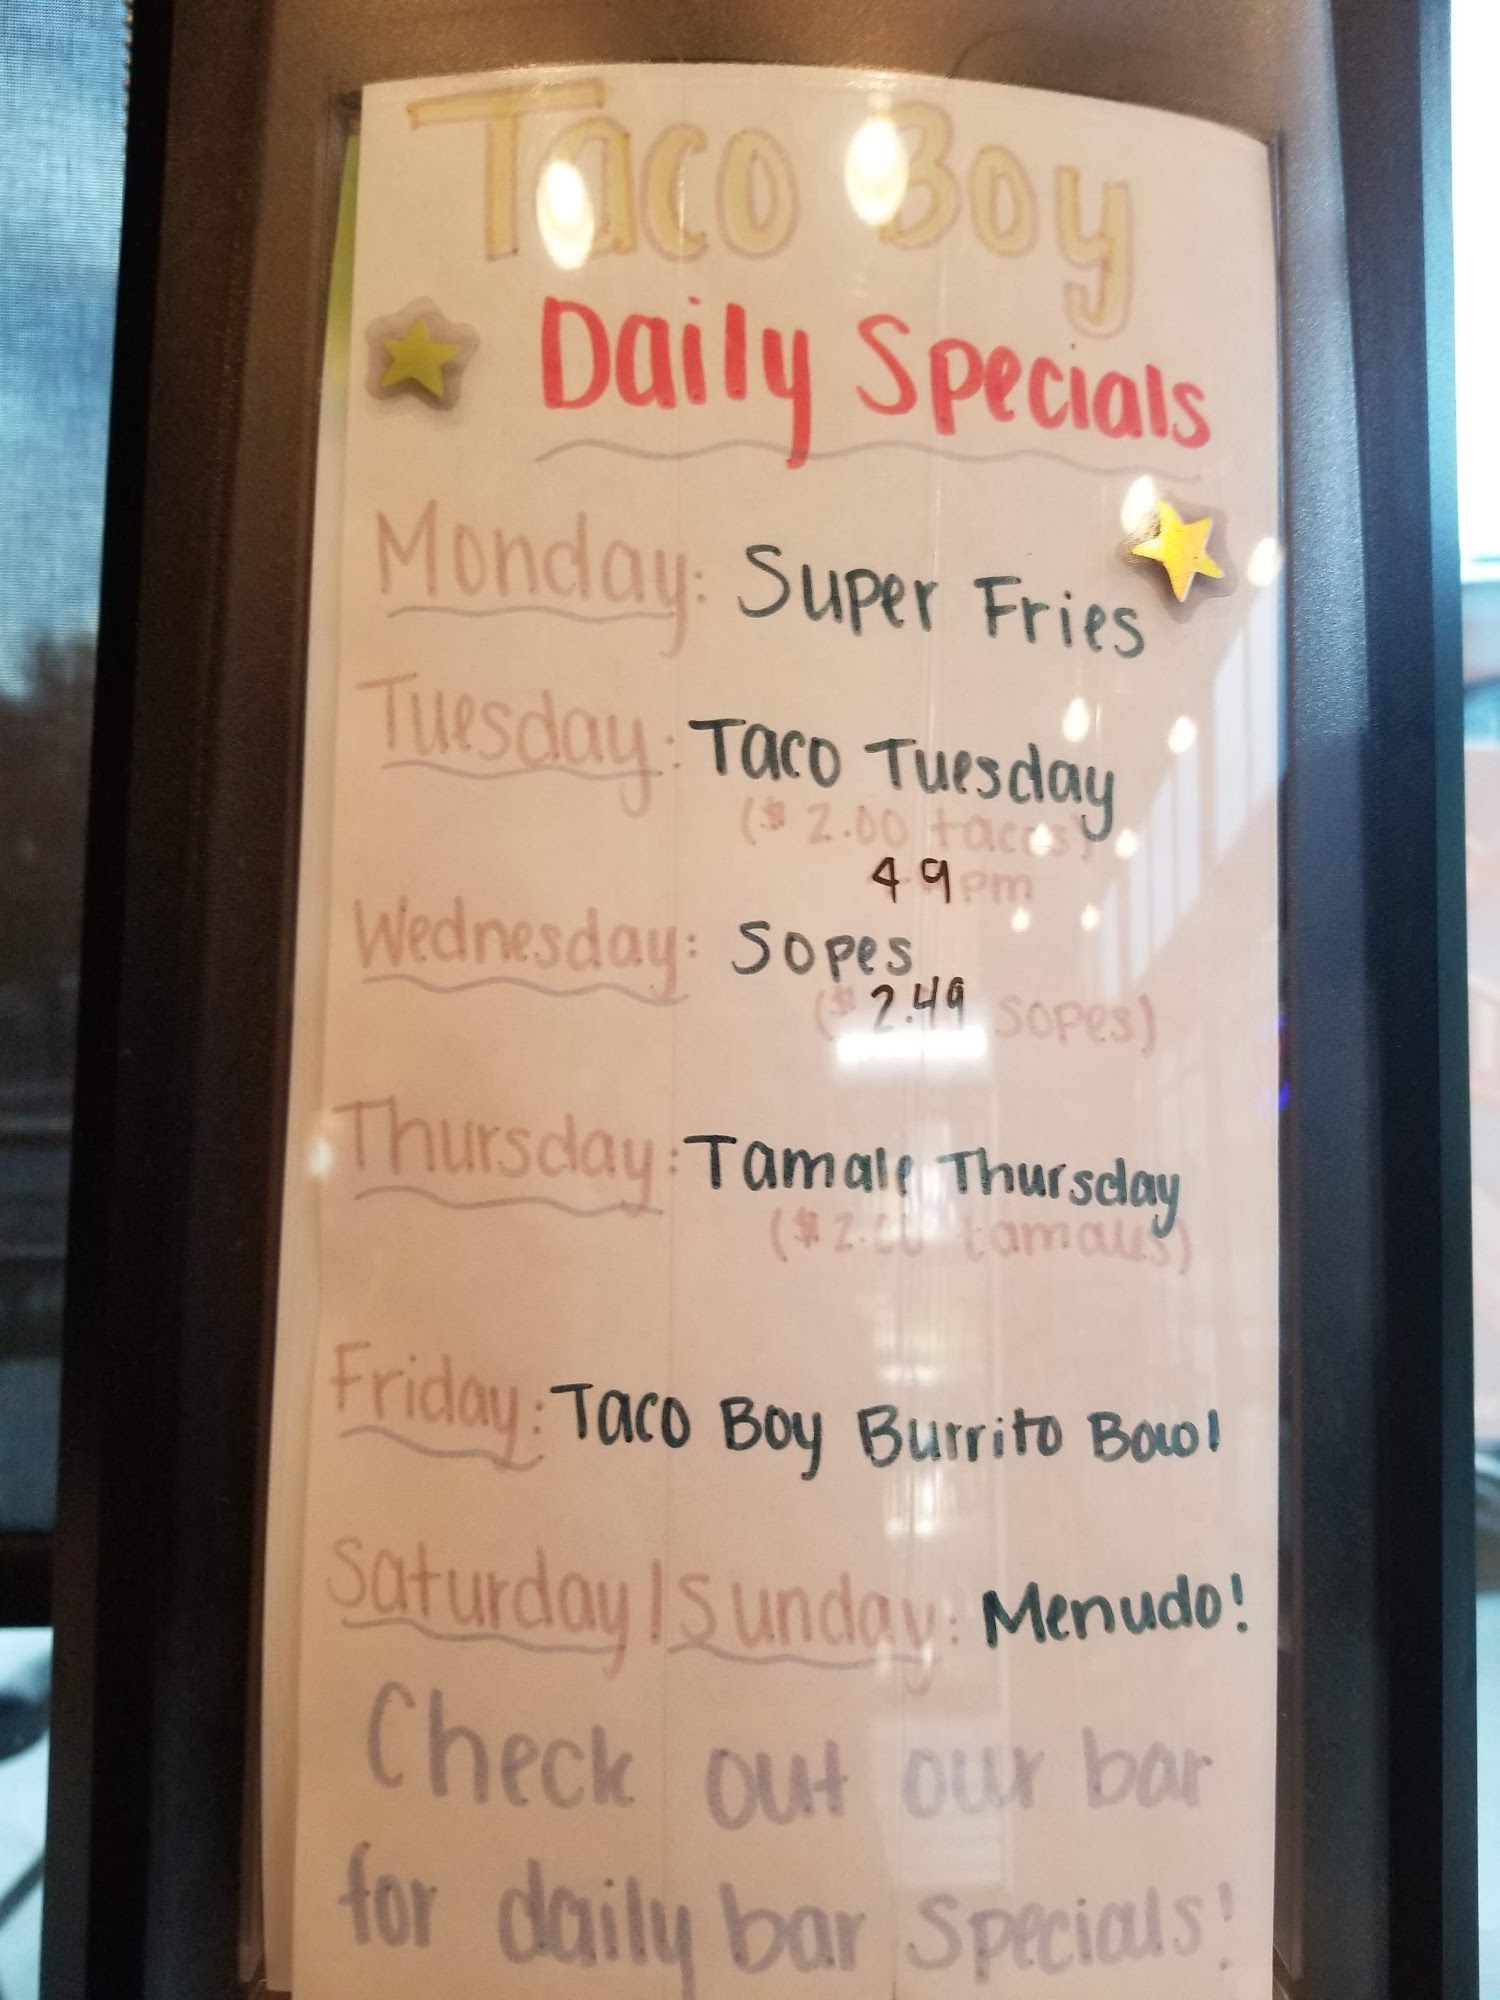 Taco Boy
Daily Specials
Monday: Super Fries
Tuesday: Taco Tuesday
($2.00 tacos)
4 9pm
Wednesday: Sopes
($ 2.49 sopes)
Thursday: Tamale Thursday
($2.00 tamales)
Friday: Taco Boy Burrito Bowl
Saturday/Sunday: Menudo!
Check out our bar
for daily bar specials!